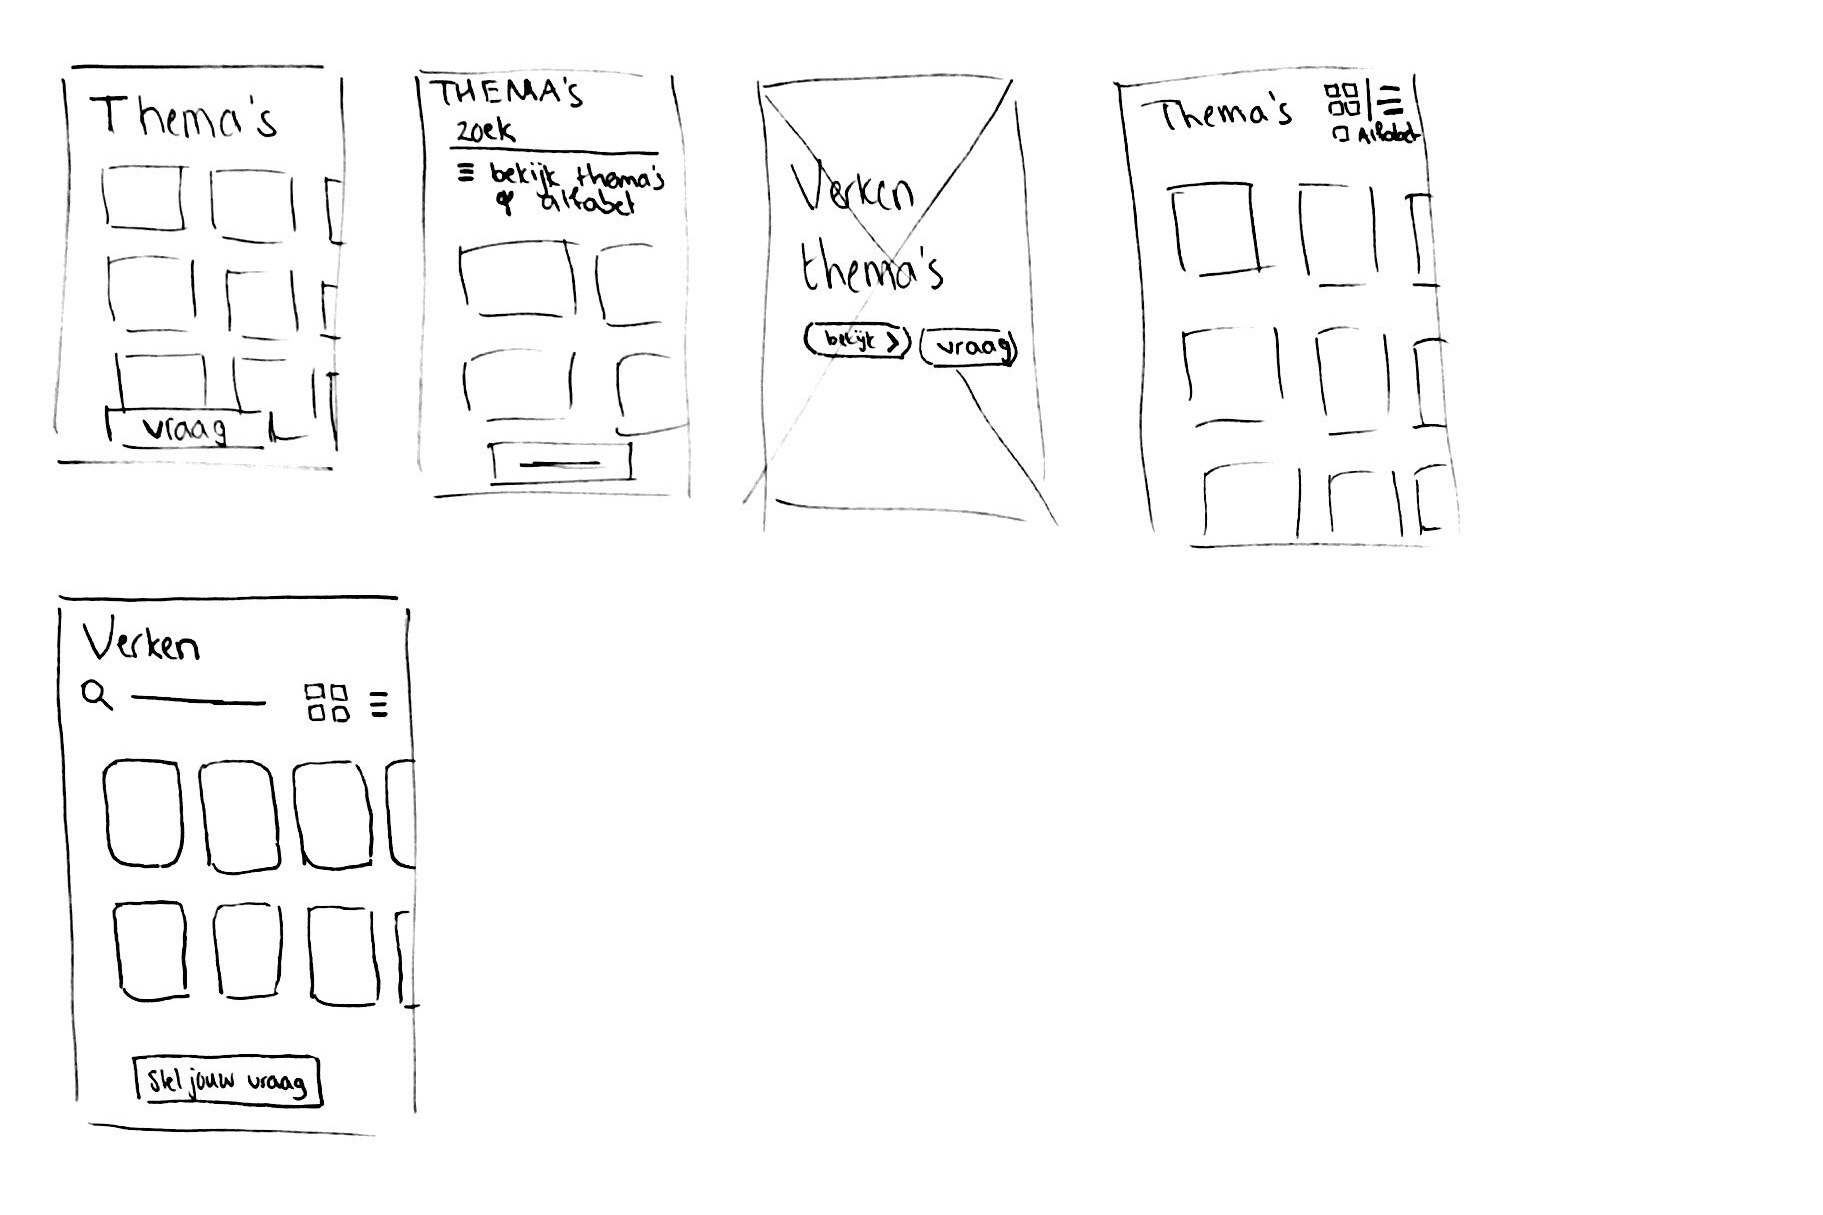 Thema's
vraag
THEMA's
zoek
bekijk thema's
op alfabet
Verken
thema's
bekijk >
vraag
Thema's
Alfabet
Verken
Stel jouw vraag